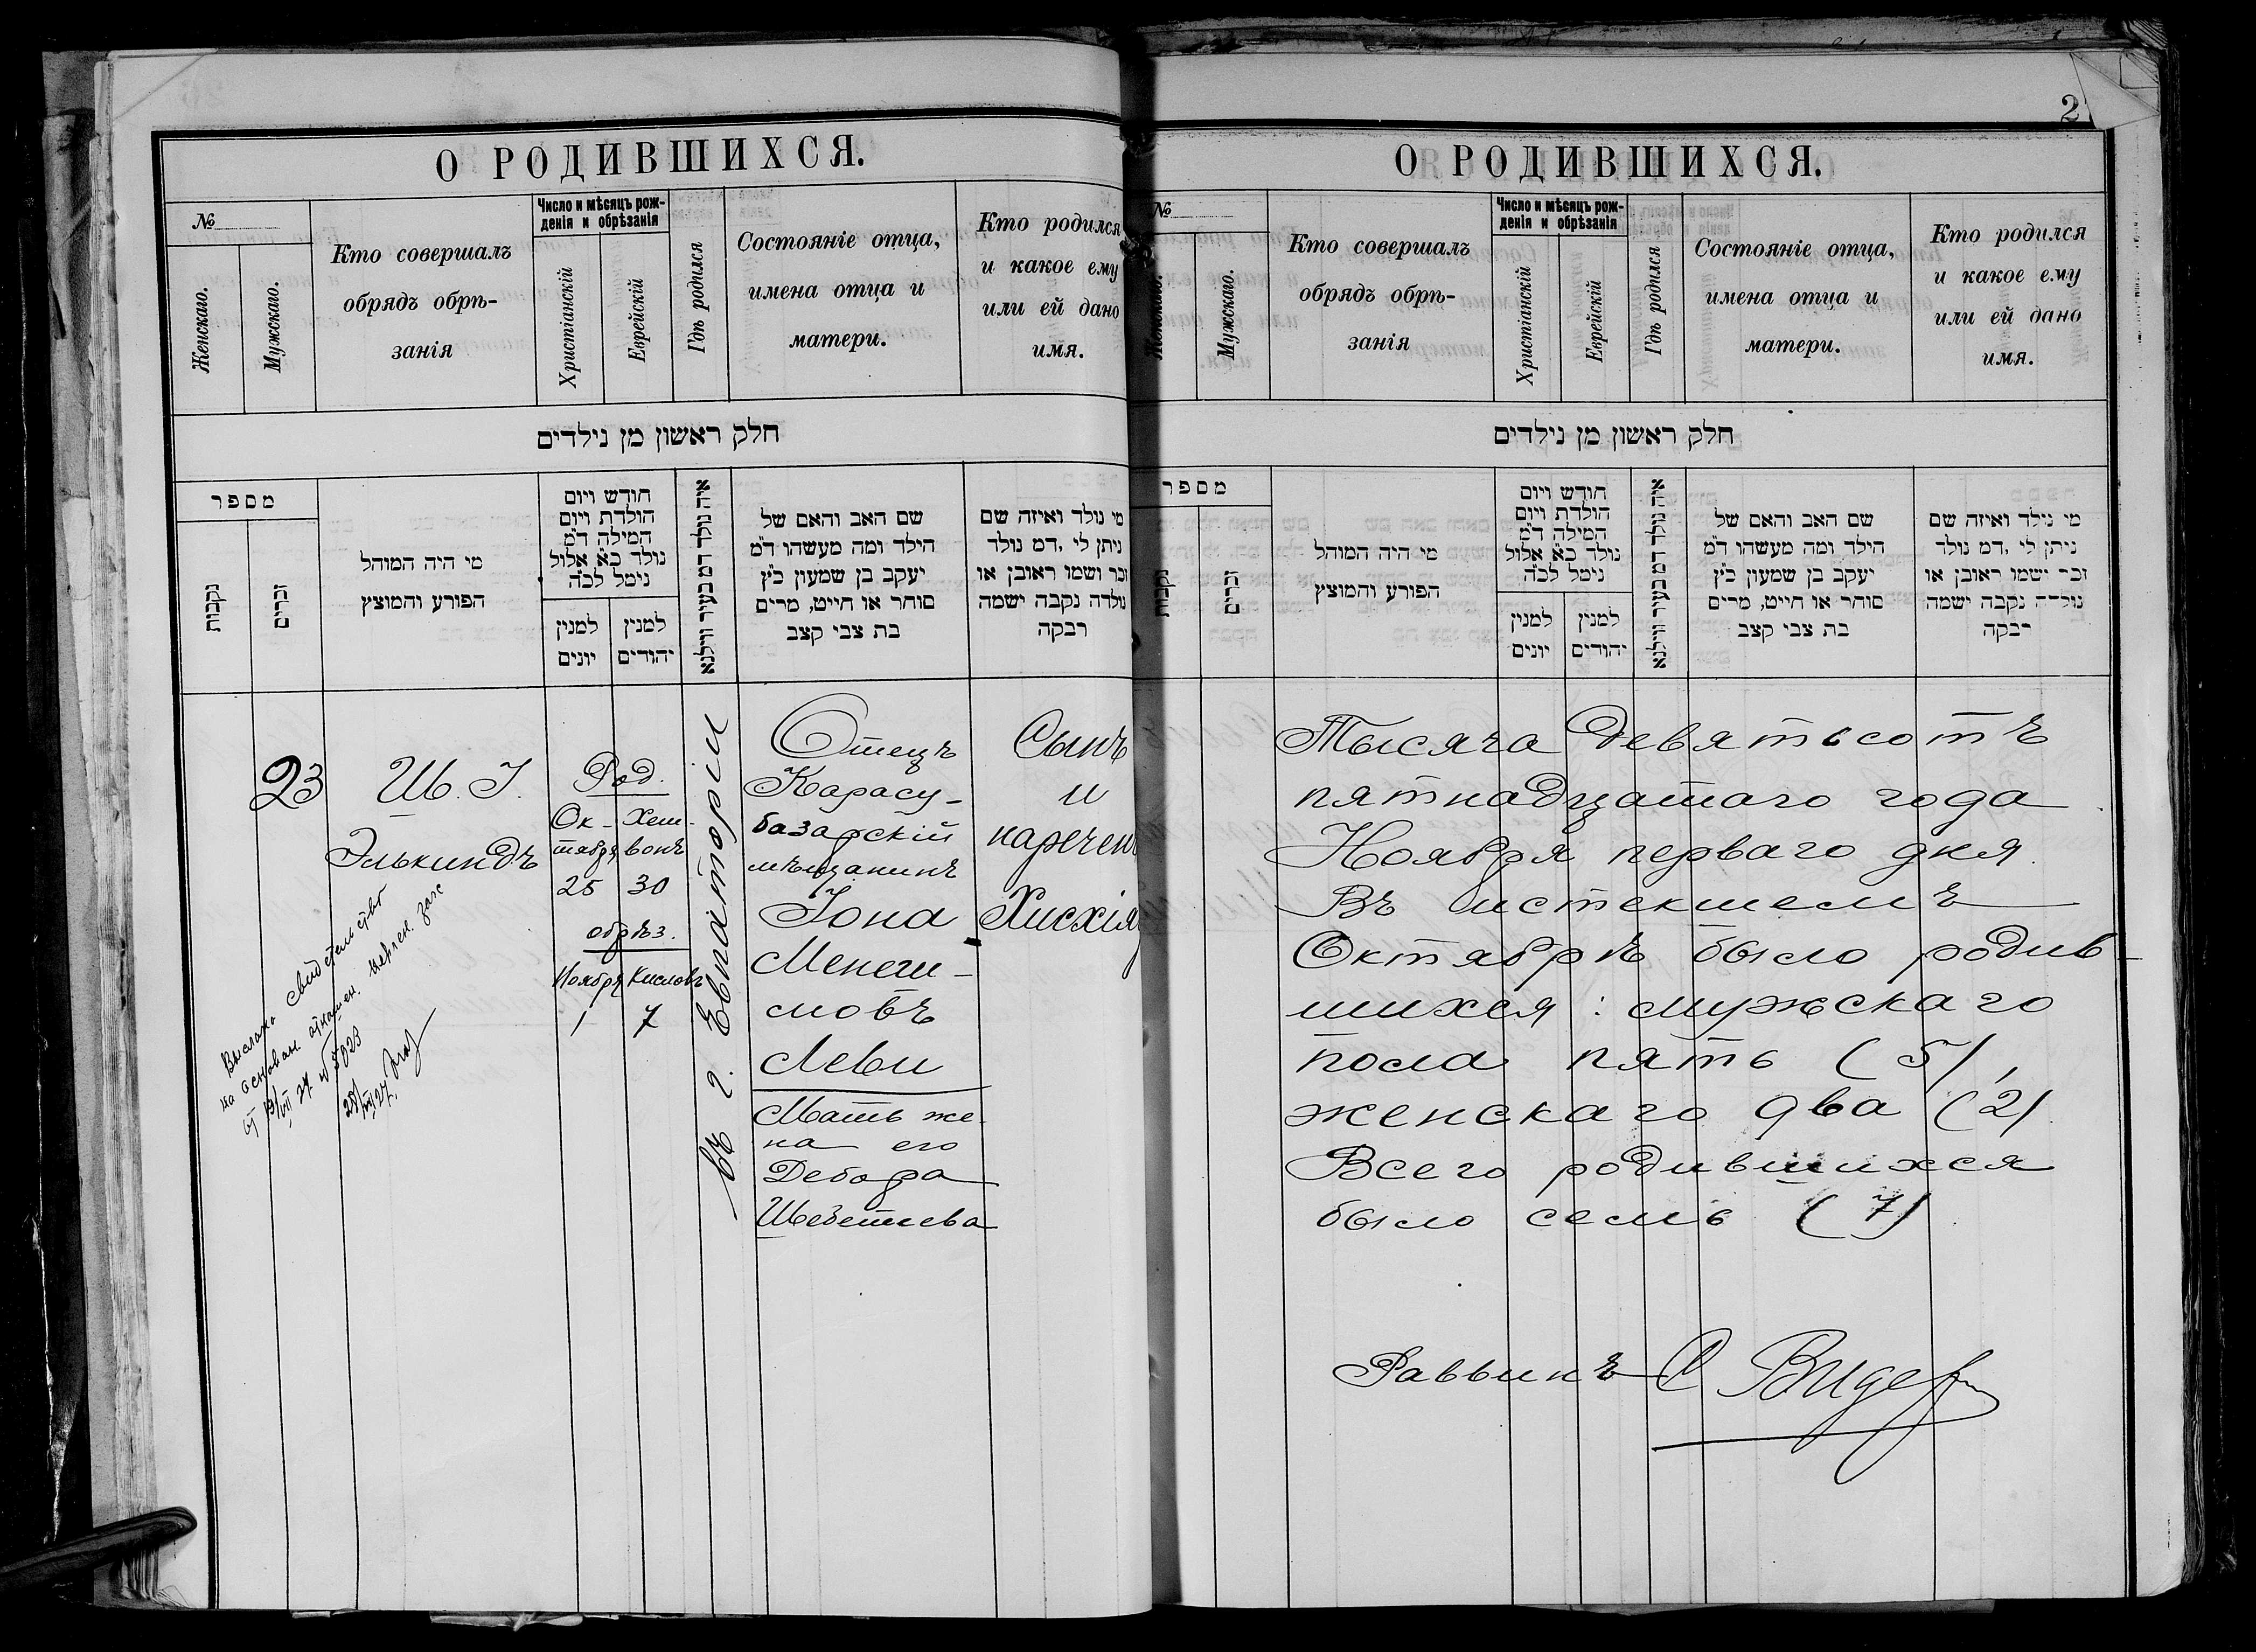 О РОДИВШИХСЯ.
№
Женскаго.
Мужскаго.
Кто совершалъ
обрядъ обрѣ-
занія
Число и мѣсяцъ рож-
денія и обрѣзанія
Христіанскій
Еврейскій
Гдѣ родился
Состояніе отца,
имена отца и
матери.
Кто родился
и какое ему
или ей дано
имя.
חלק ראשון מן נילדים
מספר
נקבות
זכרים
מי היה המוהל
הפורע והמוצץ
חודש ויום
הולדת ויום
המילה ד״מ
נולד כ״א אלול
נימל לכ״ה
למנין
יונים
למנין
יהודים
איה נולד דמ בעיר ווילנא
שם האב והאם של
הילד ומה מעשהו ד״מ
יעקב בן שמעון כ״ץ
סוחר או חייט, מרים
בת צבי קצב
מי נולד ואיזה שם
ניתן לי ,דמ נולד
זכר ושמו ראובן או
נולדה נקבה ישמה
רבקה
23
Ш. І.
Элькиндъ
Род.
Ок-
тября
25
Хеш-
вонъ
30
обрѣз.
Ноября
1
Кисловъ
7
въ г. Евпаторіи
Отецъ
Карасу-
базарскій
мѣщанинъ
Іона
Менаги-
мовъ
Леви
Мать же-
на его
Дебора
Шебетеева
Сынъ
и
наречен
Хисхія
свидетельство
27
5023
О РОДИВШИХСЯ.
№
Женскаго.
Мужскаго.
Кто совершалъ
обрядъ обрѣ-
занія
Число и мѣсяцъ рож-
денія и обрѣзанія
Христіанскій
Еврейскій
Гдѣ родился
Состояніе отца,
имена отца и
матери.
Кто родился
и какое ему
или ей дано
имя.
חלק ראשון מן נילדים
מספר
נקבות
זכרים
מי היה המוהל
הפורע והמוצץ
חודש ויום
הולדת ויום
המילה ד״מ
נולד כ״א אלול
נימל לכ״ה
למנין
יונים
למנין
יהודים
איה נולד דמ בעיר ווילנא
שם האב והאם של
הילד ומה מעשהו ד״מ
יעקב בן שמעון כ״ץ
סוחר או חייט, מרים
בת צבי קצב
מי נילד ואיזה שם
ניתן לי ,דמ נולד
זכר ישמו ראובן או
נולדה נקבה ישמה
רבקה
Тысяча девятьсотъ
пятнадцатаго года
Ноября перваго дня.
Въ истекшемъ
Октябрѣ было родив-
шихся: мужскаго
пола пять (5),
женскаго два (2)
Всего родившихся
было семь (7)
Раввинъ С Видер